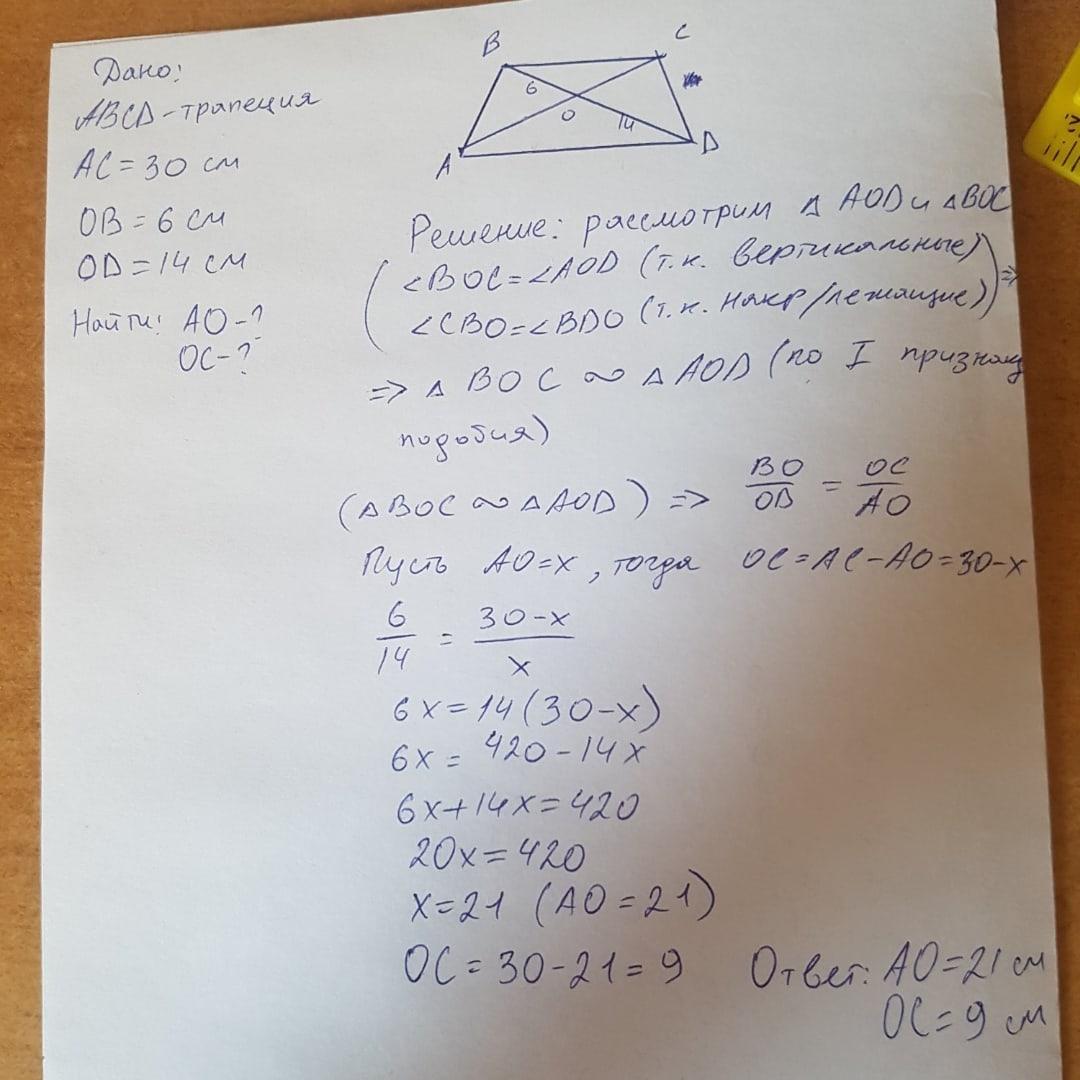 Дано:
ABCD - трапеция
AC = 30 см
OB = 6 см
OD = 14 см
Найти: AO - ?
OC - ?
B
C
6
O
14
A
D
Решение: рассмотрим △ AOD и △BOC
(∠BOC = ∠AOD (т.к. вертикальные)
∠CBO = ∠BDO (т.к. накр/лежащие)) =>
=> △ BOC ∾ △ AOD (по I признаку
подобия)
(△ BOC ∾ △ AOD) => BO/OD = OC/AO
Пусть AO = x, тогда OC = AC - AO = 30 - x
6/14 = 30 - x/x
6x = 14(30 - x)
6x = 420 - 14x
6x + 14x = 420
20x = 420
x = 21 (AO = 21)
OC = 30 - 21 = 9
Ответ: AO = 21 см
OC = 9 см